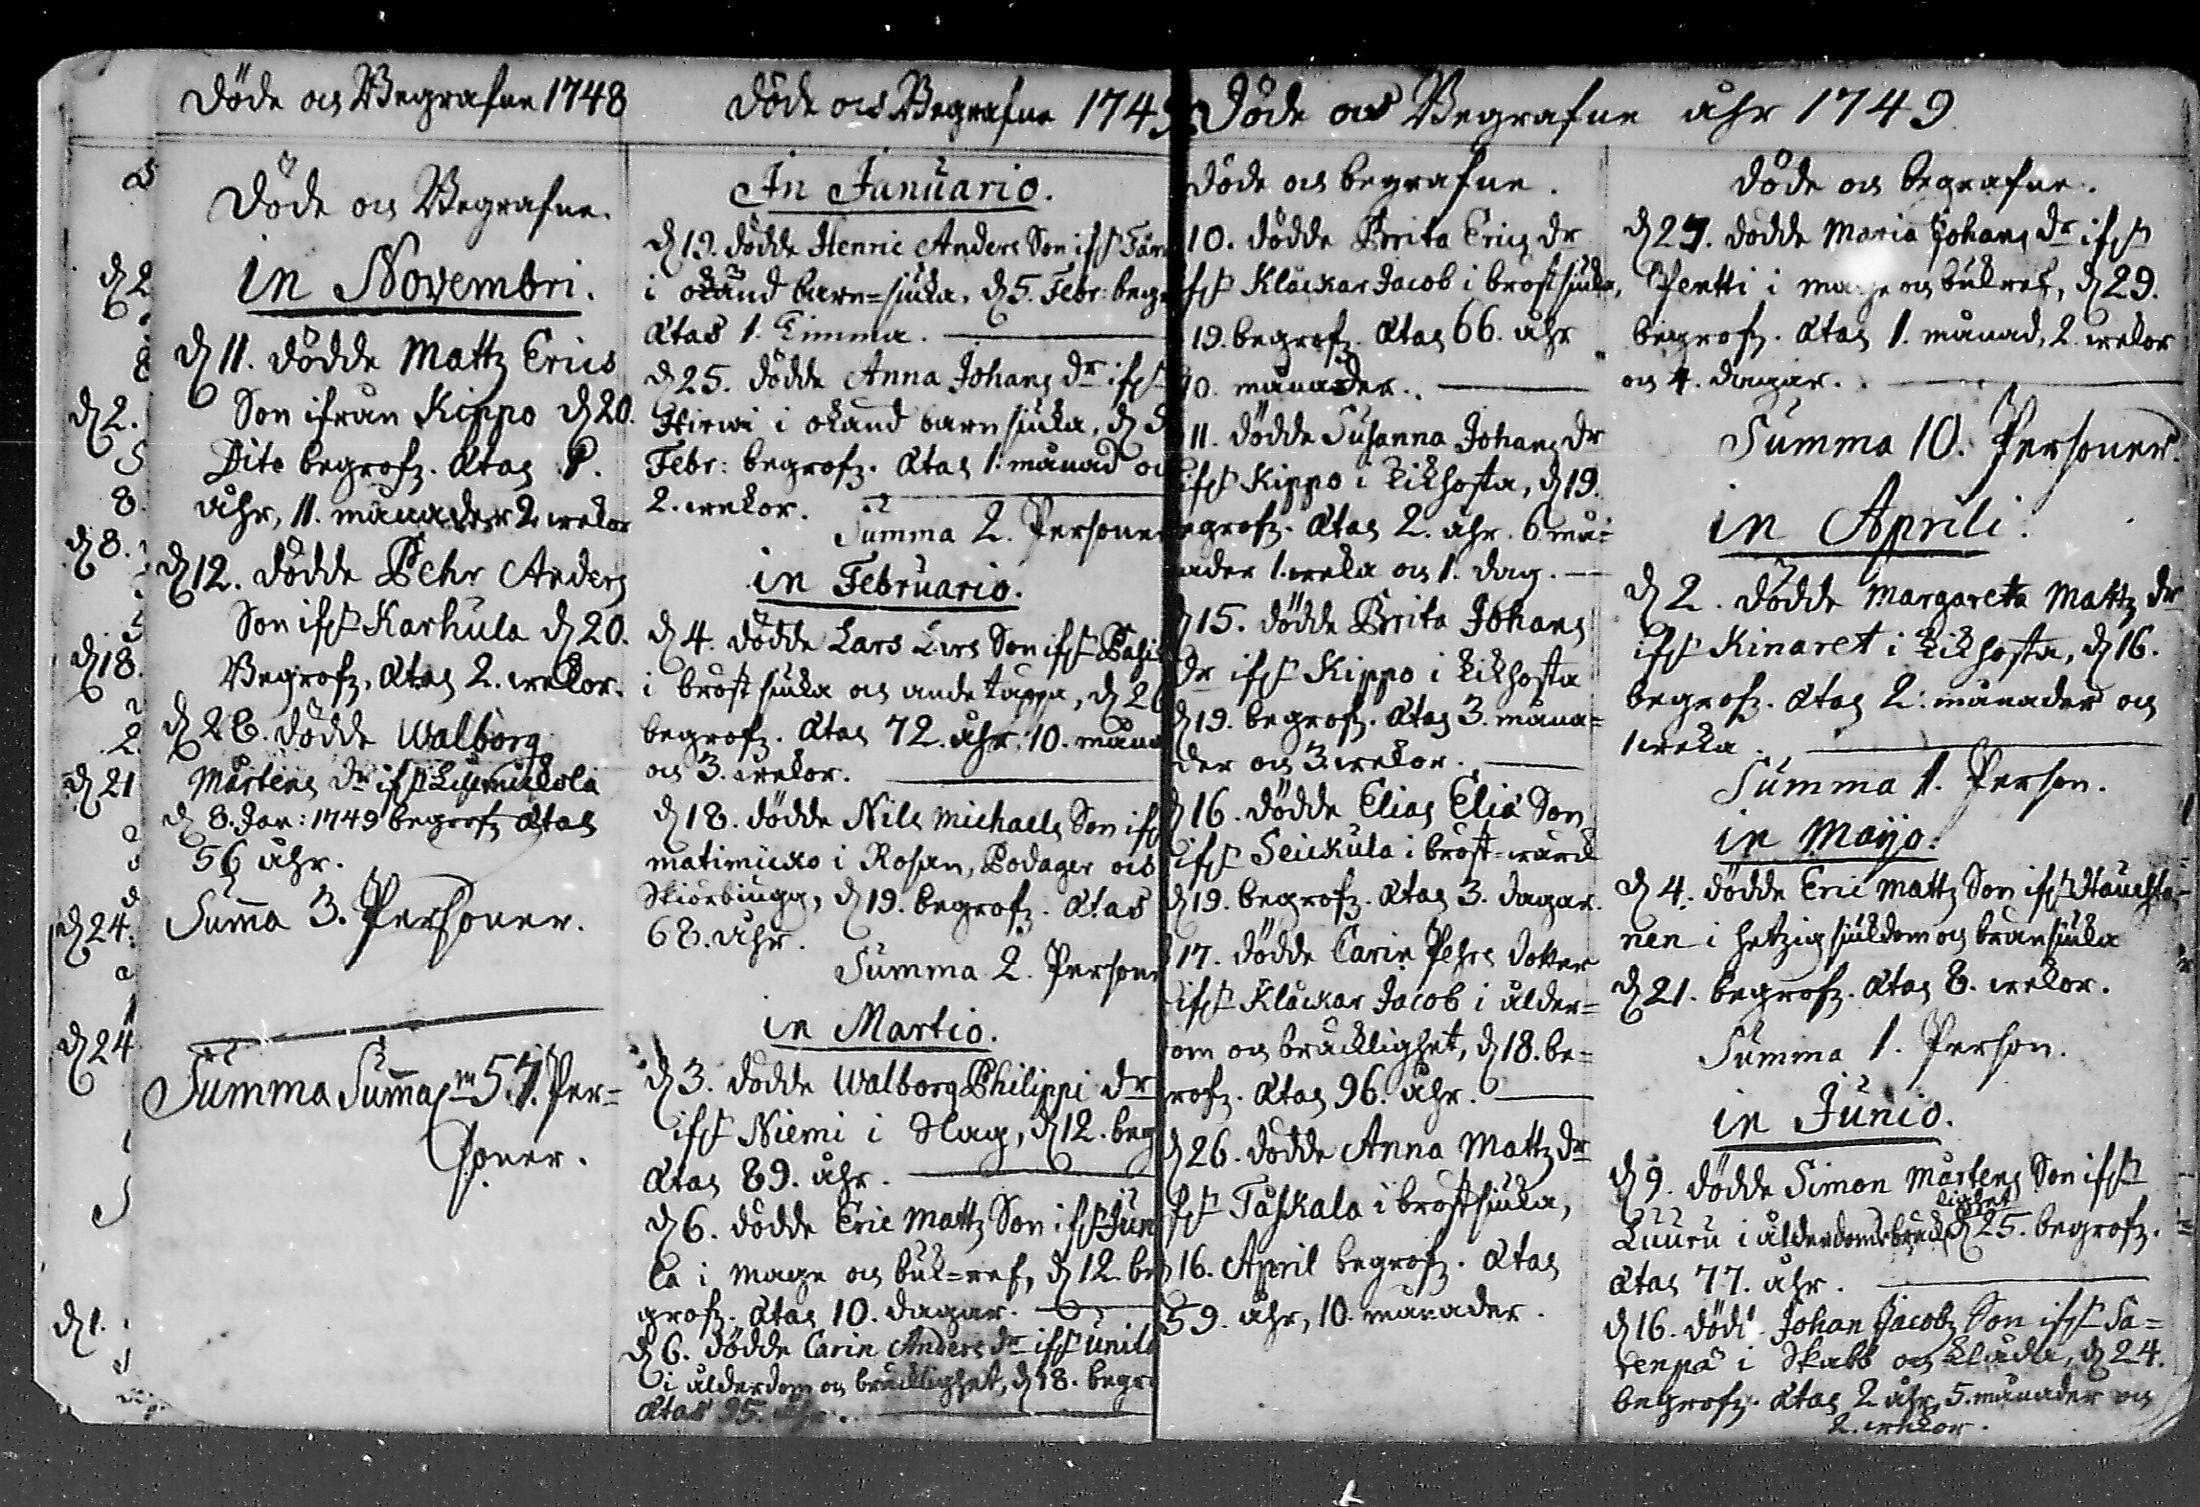 Döde och Begrafne 1748
Döde och Begrafne.
in Novembri.
d. 11. dödde Mattz Erics
Son ifrån Kippo d. 20.
Dito begrofz. Ætas
åhr, 11. månader 2 wekor
d. 12. dödde Pehr Anders
Son ifrån Karhula d. 20.
Begrofz. Ætas 2. wekor.
d. 28. dödde Walborg
Mårtens dr ifrån
d. 8. Jan: 1749 begrofz Ætas
56 åhr.
Suma 3. Personer.
Summa Sumarum 57. Per=
soner.
Döde och Begrafne 174
In Januario.
d. 19. dödde Henric Anders Son ifrån
i okänd barn=siuka, d. 5. Febr:
Ætas 1. Timma.
d. 25. dödde Anna Johans dr ifrån
Hirwi i okänd barnsiuka, d.
Febr: begrofz. Ætas 1. månad och
2. wekor.
Summa 2. Persone
in Februario.
d. 4. dödde Lars Lars Son ifrån
i bröstsiuka och andetäppa, d. 26
begrofz. Ætas 72. åhr. 10. måna
och 3. wekor.
d. 18. dödde Nils Michaels Son ifrån
matimicko i Rosen, Podager och
Skiörbiugg, d. 19. begrofz. Ætas
68. åhr.
Summa 2. Person
in Martio.
d. 3. dödde Walborg Philippi dr
ifrån Niemi i Slag, d. 12. beg
Ætas 89. åhr.
d. 6. dödde Eric Mattz Son ifrån Jun
la i Mage och buk=ref, d. 12. be
grofz. Ætas 10. dagar.
d. 6. dödde Carin Anders dr ifrån unila
i ålderdom och bräcklighet, d. 18. begro
Ætas 95. åhr.
Döde och Begrafne åhr 1749
Döde och begrafne.
10. dödde Brita Erics dr
ifrån Kläckar Jacob i bröstsiuka,
19. begrofz. Ætas 66. åhr
10. månader.
11. dödde Susanna Johans dr
ifrån Kippo i kikhosta, d. 19.
begrofz. Ætas 2. åhr. 6. må=
nader 1. weka och 1. dag.
d. 15. dödde Brita Johans
dr ifrån Kippo i kikhosta
d. 19. begrofz. Ætas 3. måna=
der och 3. wekor.
d. 16. dödde Elias Eliæ Son
ifrån Seickula i bröst=wärck
d. 19. begrofz. Ætas 3. dagar.
17. dödde Carin Pehrs doter
ifrån Kläckar Jacob i ålder=
dom och bräcklighet, d. 18. be=
grofz. Ætas 96. åhr.
d. 26. dödde Anna Mattz dr
ifrån Taskala i bröstsiuka,
16. April begrofz. Ætas
59. åhr, 10. månader.
Döde och begrafne.
d. 27. dödde Maria Johans dr ifrån
Pertti i mage och bukref, d. 29.
begrofz. Ætas 1. månad, 2. wekor
och 4. dagar.
Summa 10. Personer.
in Aprili.
d. 2. dödde Margareta Mattz dr
ifrån Kinaret i kikhosta, d. 16.
begrofz. Ætas 2. månader och
1 weka.
Summa 1. Person.
in Mayo.
d. 4. dödde Eric Mattz Son ifrån
nen i hetzig siukdom och bränsiuka
d. 21. begrofz. Ætas 8. wekor.
Summa 1. Person.
in Junio.
d. 9. dödde Simon Mårtens Son ifrån
Luuru i ålderdoms bräcklighet d. 25. begrofz.
Ætas 77. åhr.
d. 16. dödde Johan Jacobs Son ifrån Sa=
renpä i Skabb och klåda, d. 24.
begrofz. Ætas 2 åhr, 5. månader och
2. wekor.